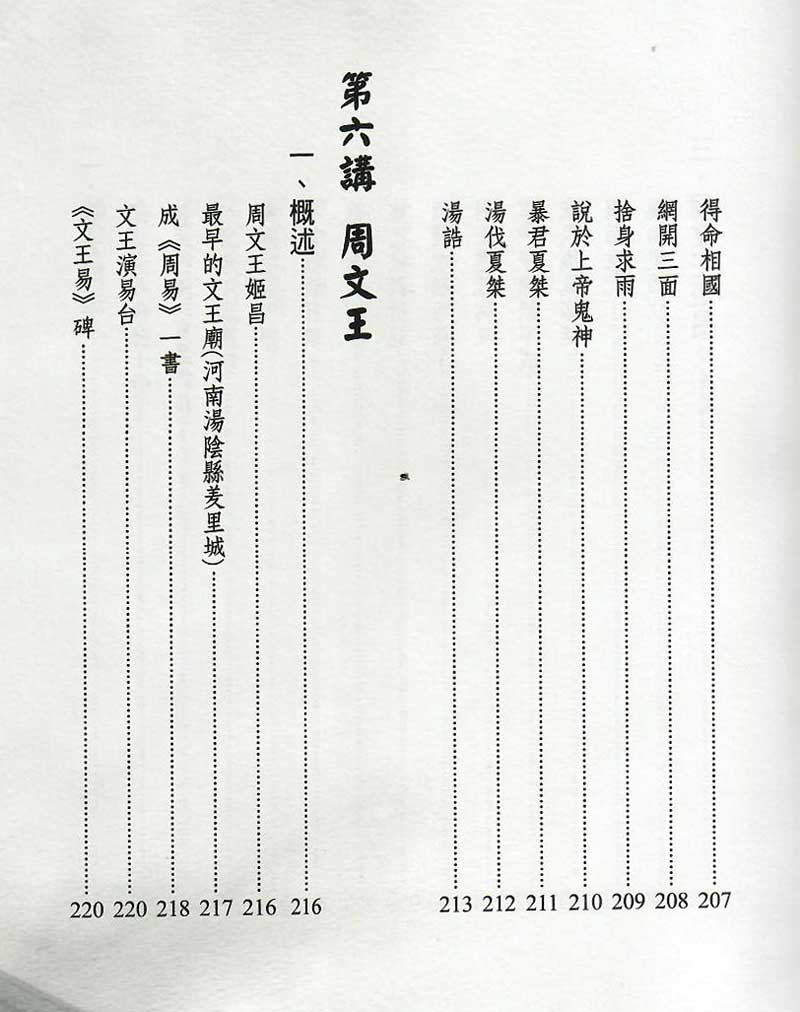 得命相國……207
網開三面……208
捨身求雨……209
說於上帝鬼神……210
暴君夏桀……211
湯伐夏桀……212
湯誥……213
第六講 周文王
一、概述……216
周文王姬昌……216
最早的文王廟(河南湯陰縣羑里城)……217
成《周易》一書……218
文王演易台……220
《文王易》碑……220